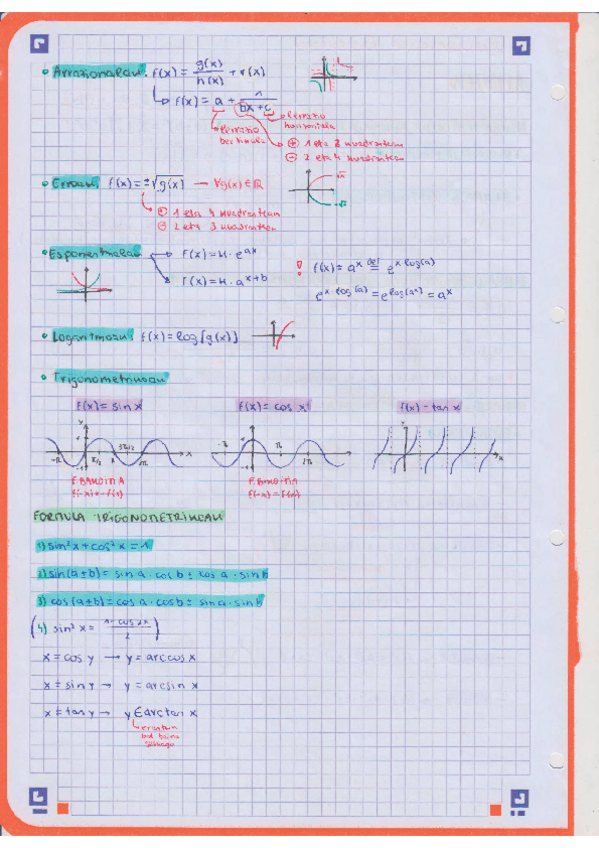 • Arrazionalak: f(x) = g(x)/h(x) + r(x)
↳ f(x) = a + 1/(bx+c)
lerratio bertikala
lerratio horizontala
⊕ 1 eta 3 kuadrantean
⊖ 2 eta 4 kuadrantean
• Erroak: f(x) = ±√g(x) → ∀g(x) ∈ ℝ
√x
-√x
⊕ 1 eta 4 kuadrantean
⊖ 2 eta 3 kuadrantean
• Esponentzialak → f(x) = k · e^ax
→ f(x) = k · a^x+b
! f(x) = a^x = e^x·log(a)
e^x·log(a) = e^log(a^x) = a^x
• Logaritmoak: f(x) = log[g(x)]
• Trigonometrikoak
f(x) = sin x
f(x) = cos x
f(x) = tan x
F. BAKOITIA
f(-x) = -f(x)
F. BIKOITIA
f(-x) = f(x)
FORMULA TRIGONOMETRIKOAK
1) sin²x + cos²x = 1
2) sin(a±b) = sin a · cos b ± cos a · sin b
3) cos(a±b) = cos a · cos b ± sin a · sin b
(4) sin²x = (1 - cos 2x)/2)
x = cos y → y = arccos x
x = sin y → y = arcsin x
x = tan y → y ∈ arctan x